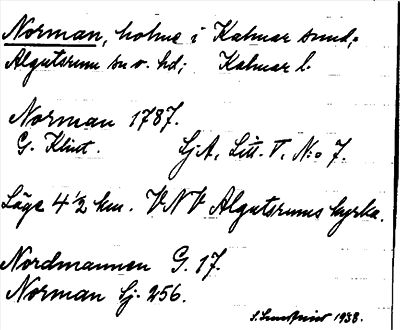 Norman, holme i Kalmar sund;
Algutsrum sn o. hd; Kalmar l.
Norman 1787.
G. Klint. Sj A, Litt. T, N:o 7.
Läge 4 1/2 km. VNV Algutsrums kyrka.
Nordmannen G. 17.
Norman Sj. 256.
S. Lundqvist 1938.